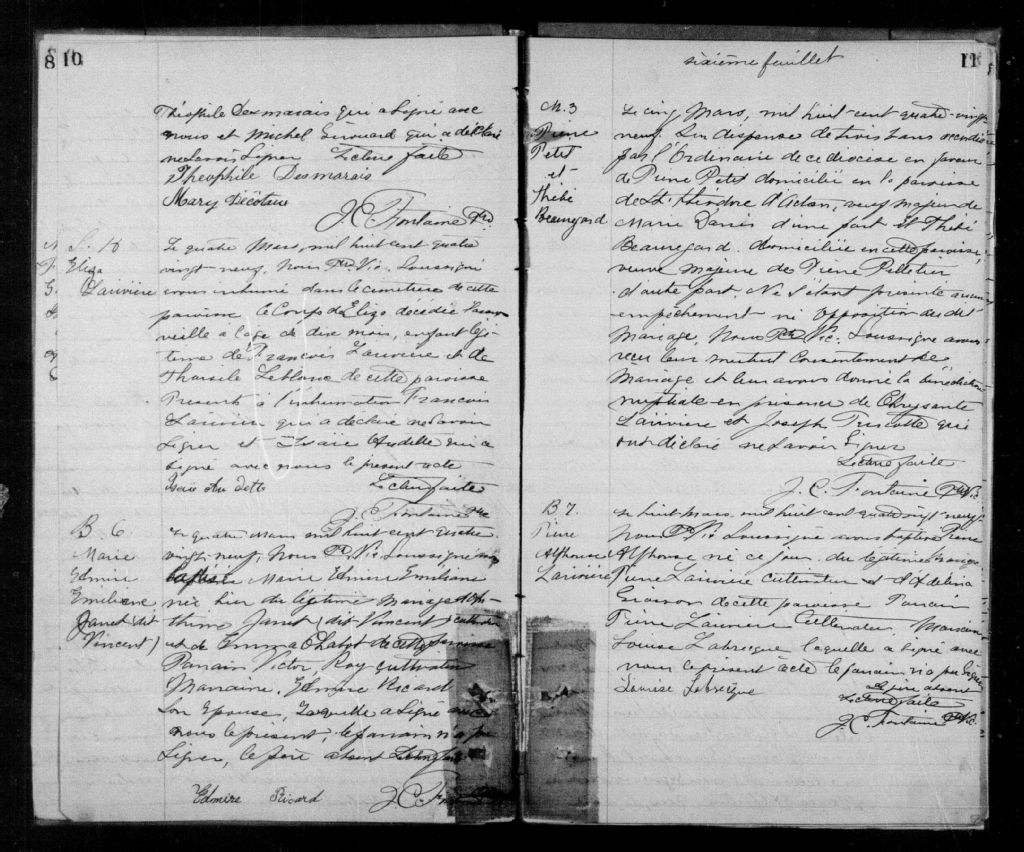 8 10
Théophile Desmarais qui a signé avec
nous et Michel Girouard qui a déclaré
ne savoir signer Lecture faite
Théophile Desmarais
Mary Décoteau
J. C. Fontaine Ptre
S. 18
Eliza
Larivière
Le quatre Mars, mil huit cent quatre
vingt neuf, Nous Ptre Vic. Soussigné
avons inhumé dans le cimetière de cette
paroisse le Corps de Eliza décédée
veille à l'age de dix mois, enfant légi-
time de François Larivière et de
Tharsile Leblanc de cette paroisse
Présents à l'inhumation François
Larivière qui a déclaré ne savoir
signer et Isaie Audette qui a
signé avec nous le présent acte
Isaie Audette Lecture faite
J. C. Fontaine Ptre
B. 6
Marie
Edmire
Emiliene
Janet (dit
Vincent)
Le quatre Mars mil huit cent quatre
vingt neuf, Nous Ptre Vic Soussigné avons
baptisé Marie Edmire Emiliene
née hier du légitime mariage
Janet (dit Vincent)
et de Emma Chabot de cette paroisse
Parrain Victor Roy cultivateur
Marraine, Edmire Ricard
son épouse, laquelle a signé avec
nous le présent. le parrain n'a pu
signer, le père absent Lecture faite
Edmire Ricard J. C. Fontaine
sixième feuillet
11
M. 3
Pierre
Petit
et
Thébé
Beauregard
Le cinq Mars, mil huit cent quatre-vingt
neuf. Vu dispense de trois bans accordée
par l'Ordinaire de ce diocèse en faveur
de Pierre Petit domicilié en la paroisse
de St. Théodore d'Acton, veuf majeur de
Marie Danis d'une part et Thébé
Beauregard domiciliée en cette paroisse,
veuve majeure de Pierre Pelletier
d'autre part. Ne s'étant présenté aucun
empêchement ni opposition au dit
Mariage, Nous Ptre Vic. Soussigné avons
reçu leur mutuel consentement de
Mariage et leur avons donné la bénédiction
nuptiale en présence de Chrysante
Larivière et Joseph Turcotte qui
ont déclaré ne savoir signer
Lecture faite
J. C. Fontaine Ptre Vic
B 7.
Pierre
Alphonse
Larivière
Le huit Mars mil huit cent quatre vingt neuf,
Nous Ptre Vic Soussigné avons baptisé Pierre
Alphonse né ce jour du légitime Mariage
Pierre Larivière cultivateur et d'Adelina
de cette paroisse Parrain
Pierre Larivière cultivateur, Marraine
Louise Labrecque laquelle a signé avec
nous le présent acte le parrain n'a pu signer
Le père absent
Louise Labrecque Lecture faite
J. C. Fontaine Ptre Vic.